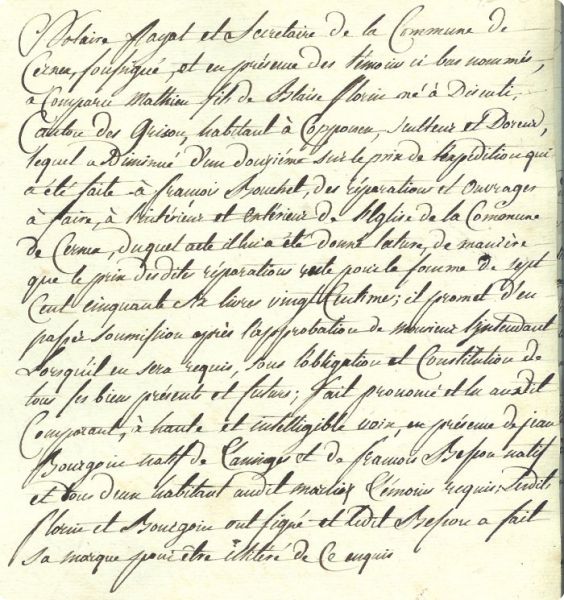 Notaire Royal et Secretaire de la Commune de
Cernex, soussigné, et en présence des témoins ci bas nommés,
a Comparu Mathieu fils de Blaise florin né à Disenti,
Canton des Grison, habitant à Copponex, sculteur et Doreur,
lequel a Diminué d'un douzième sur le prix de l'expédition qui
a été faite à francois Bouchet, des réparations et ouvrages
à faire, à l'intérieur et extérieur de l'Eglise de la Commune
de Cernex, duquel acte il lui a été donné lecture, de manière
que le prix desdites réparations reste pour la somme de sept
Cent cinquante six livres vingt Centimes; il promet d'en
passer soumission après l'approbation de monsieur l'intendant
Lorsqu'il en sera requis, sous l'obligation et Constitution de
tous ses biens présents et futurs; fait prononcé et lu audit
Comparant, à haute et intelligible voix, en présence de jean
Bourgoin natif de et de francois Besson natif
et tous deux habitant audit témoins requis; Ledit
florin et Bourgoin ont signé et Ledit Besson a fait
sa marque pour être illitéré de Ce enquis